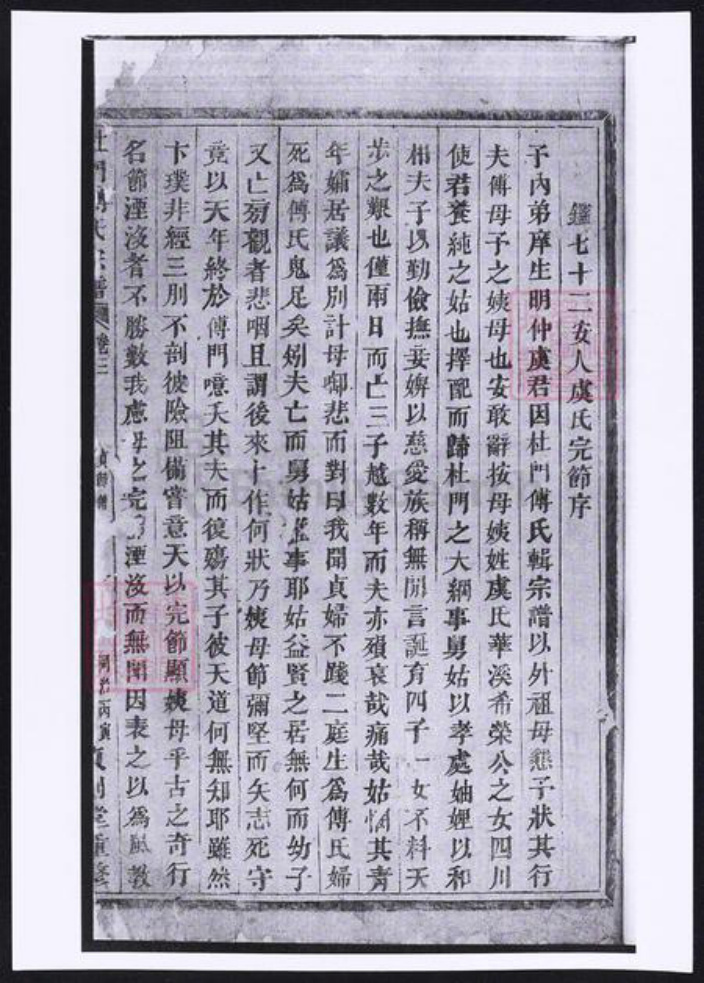 鑑七十二安人虞氏完節序
予內弟庠生明仲虞君因杜門傅氏輯宗譜以外祖母懇予狀其行
夫傅母予之姨母也安敢辭按母姨姓虞氏華溪希榮公之女四川
使君養純之姑也擇配而歸杜門之大綱事舅姑以孝處妯娌以和
相夫子以勤儉撫妾婢以慈愛族稱無閒言誕育四子一女不料天
步之艱也僅兩日而亡三子越數年而夫亦殞哀哉痛哉姑憫其青
年孀居議爲別計母啣悲而對曰我聞貞婦不踐二庭生爲傅氏婦
死爲傅氏鬼足矣矧夫亡而舅姑事耶姑益賢之居無何而幼子
又亡旁觀者悲咽且謂後來十作何狀乃姨母節彌堅而矢志死守
竟以天年終於傅門噫夭其夫而復殤其子彼天道何無知耶雖然
卞璞非經三刖不剖彼險阻備嘗意天以完節顯姨母乎古之奇行
名節湮沒者不勝數我慮母之完湮沒而無聞因表之以爲風教
杜門傅氏宗譜 卷三 同治丙寅